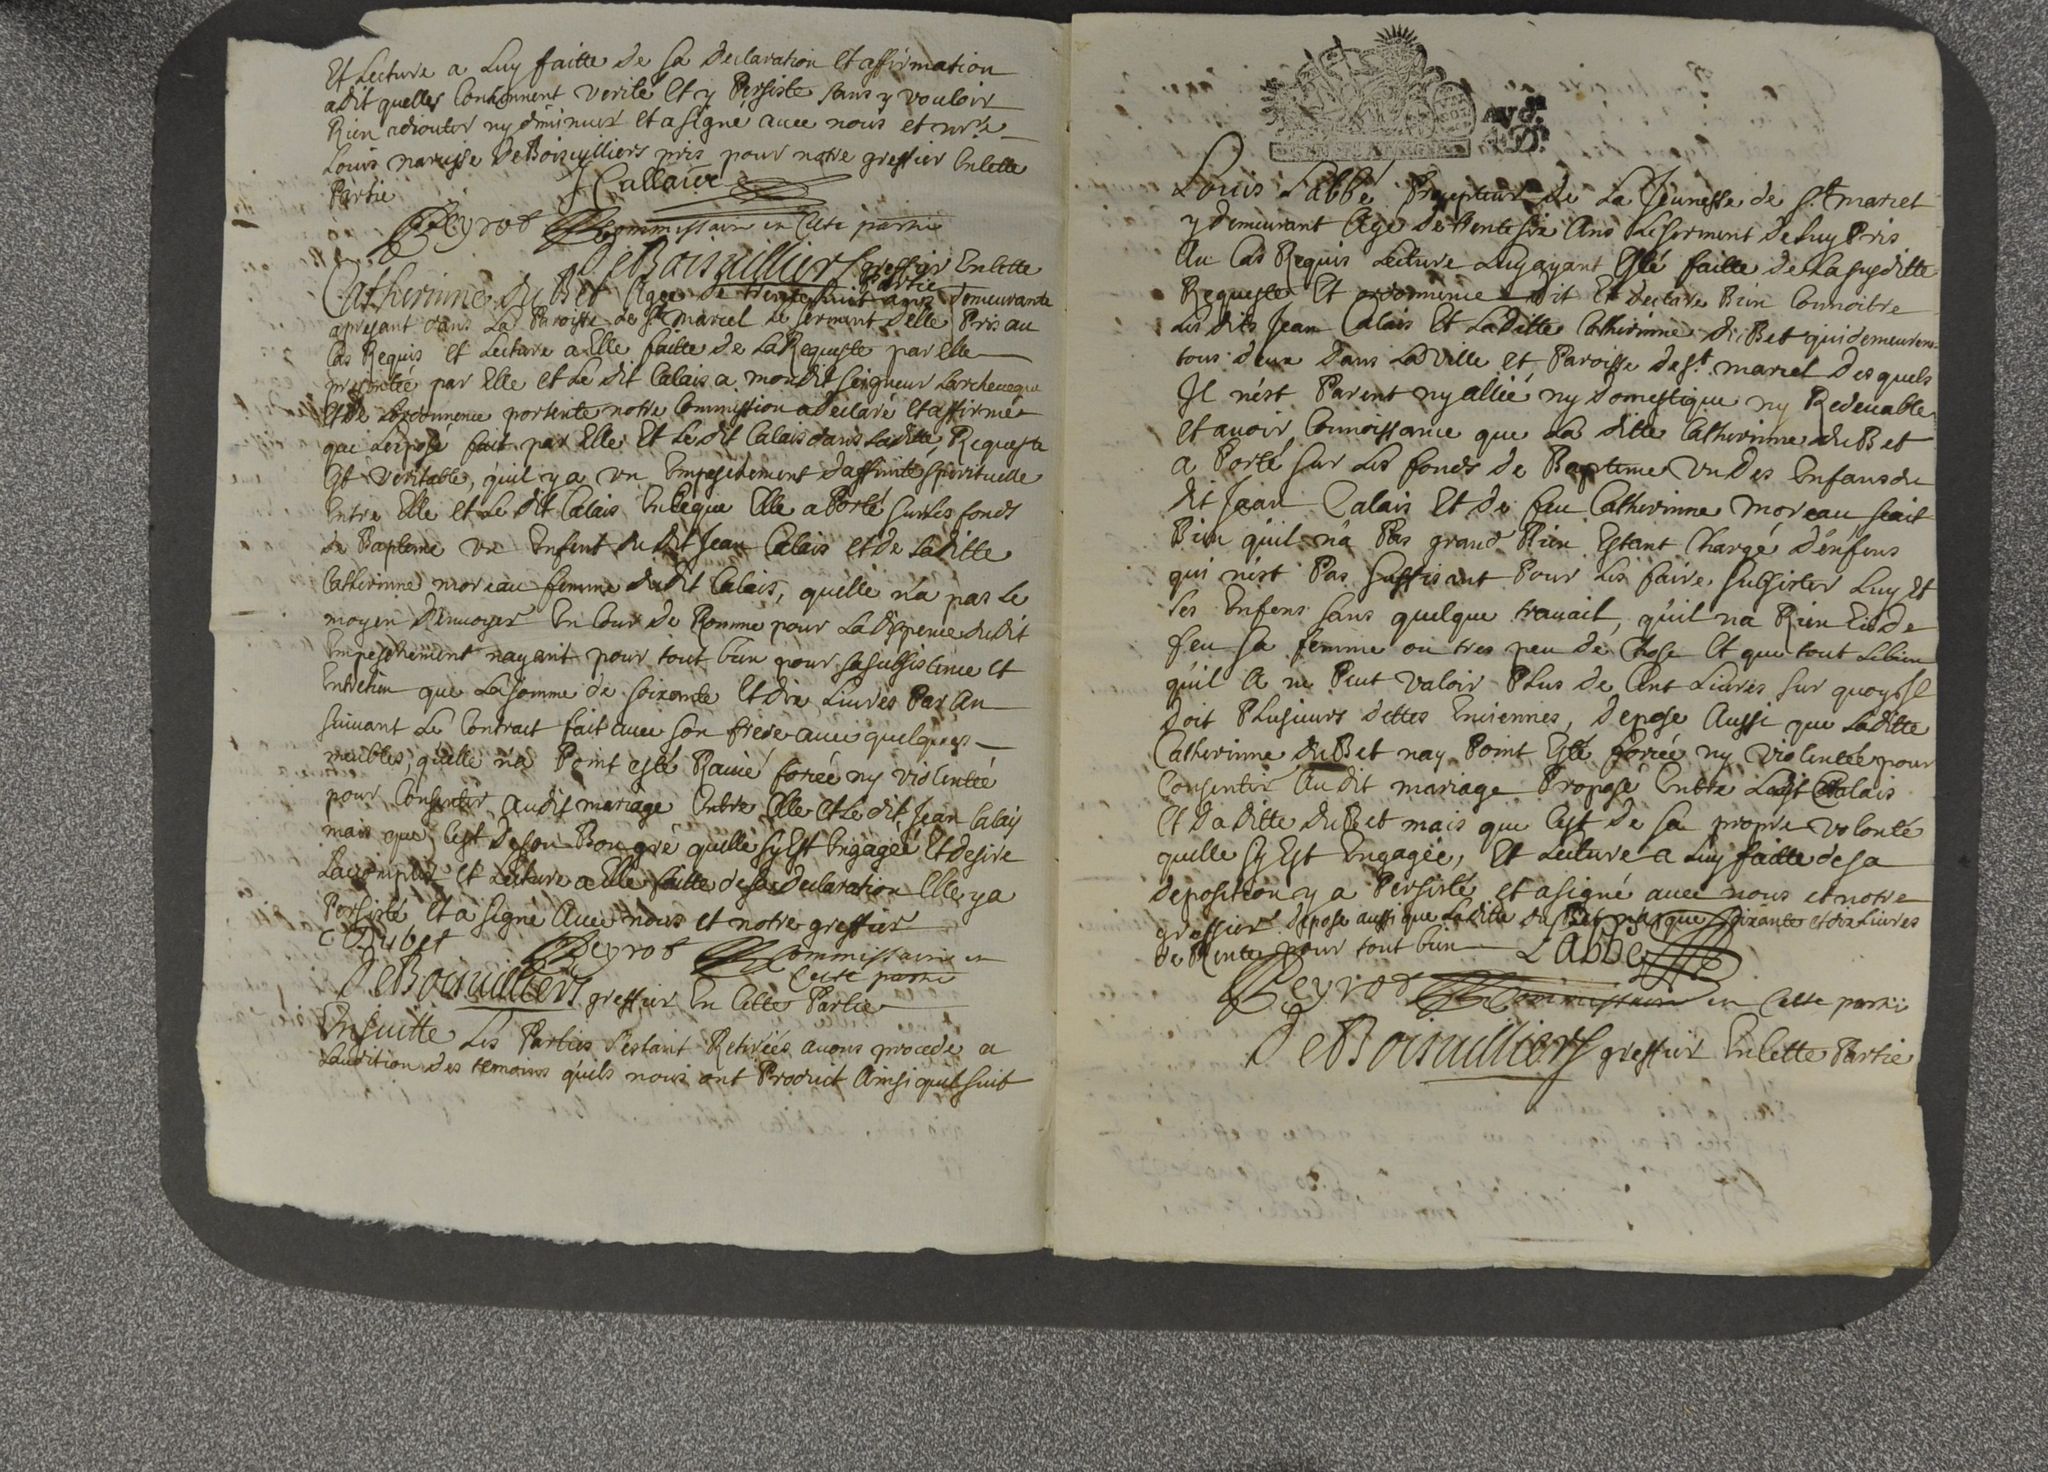 Et Lecture a Luy faitte de sa declaration et affirmation
a dit quelles contiennent verité et y Persiste sans y vouloir
Rien adiouter ny diminuer et a signé avec nous et
Louis narcisse DeBoisvilliers pris pour notre greffier En cette
Partie
J Callaire
Peyrot Commissaire en Cette partie
DeBoisvilliers greffier En cette
Partie
Catherinne duBet Agée de trente huit ans demeurante
apresant dans La Paroisse de St marcel Le serment delle Pris au
Cas Requis et Lecture a Elle faitte de La Requeste par elle
presentée par Elle et Le dit Calais a mondit seigneur Larcheveque
et de Lordonnence portente notre Commission a declaré et affirmé
que Lexposé fait par Elle Et Le dit Calais dans Laditte Requeste
Est veritable, quil y a un Empeschement daffinité spirituelle
Entre Elle et Le dit Calais En ce que Elle a Porté sur Les fonds
de Bapteme un Enfent du dit Jean Calais et de Laditte
Catherinne moreau femme dudit Calais, quelle na pas Le
moyen denvoyer En Cour de Romme pour La dispence dudit
Empeschement nayant pour tout bien pour sa subsistence et
Entretien que La somme de soixante Et dix Livres Par An
suivant Le Contract fait avec son frere avec quelques
meubles, quelle na Point esté Ravié forcée ny violentée
pour Consentir audit mariage Entre Elle Et Le dit Jean Calais
mais que cest de son Bon gré quelle sy Est Engagée Et desire
Laccomplir et Lecture a Elle faitte de sa declaration Elle y a
Persisté Et a signé Avec nous et notre greffier
C Dubet Peyrot Commissaire en
Cette partie
DeBoisvilliers greffier En Cette Partie
Ensuitte Les Parties sestant Retirées avons procede a
Laudition des temoins quils nous ont Produit Ainsi quil suit
Louis Labbé Precepteur de La Jeunesse de St marcel
y demeurant Agé de trente six Ans Le serment de Luy Pris
Au Cas Requis Lecture Luy ayant Esté faitte de La susditte
Requeste Et ordonnence dit Et declare Bien Connoitre
Les dits Jean Calais Et Laditte Catherinne duBet qui demeurent
tous deux dans La ville et Paroisse de St marcel des quels
Il n'est Parent ny allié ny domestique ny Redevable
Et avoir Connoissance que La ditte Catherinne duBet
a Porté sur Les fonds de Bapteme un des Enfans du
dit Jean Calais Et de feu Catherinne moreau sçait
Bien qu'il na Pas grand Bien Estant Chargé d'enfens
qui nest Pas suffisant Pour Les faire subsister Luy Et
ses Enfens sans quelque travail, quil na Rien Eu de
feu sa femme ou tres peu de Chose Et que tout Le bien
quil A ne Peut valoir Plus de Cent Livres sur quoy Il
doit Plusieurs dettes Enciennes, depose Aussi que Laditte
Catherinne duBet nay Point Esté forcée ny violentée pour
Consentir Au dit mariage Proposé Entre Ledit Calais
Et Laditte duBet mais que Cest de sa propre volonté
quelle sy Est Engagée, Et Lecture a Luy faitte de sa
deposition y a Persisté et a signé avec nous et notre
greffier depose aussi que Laditte duBet na que soixante et dix Livres
de Rente pour tout bien Labbe
Peyrot Commissaire en Cette partie
DeBoisvilliers greffier En Cette Partie